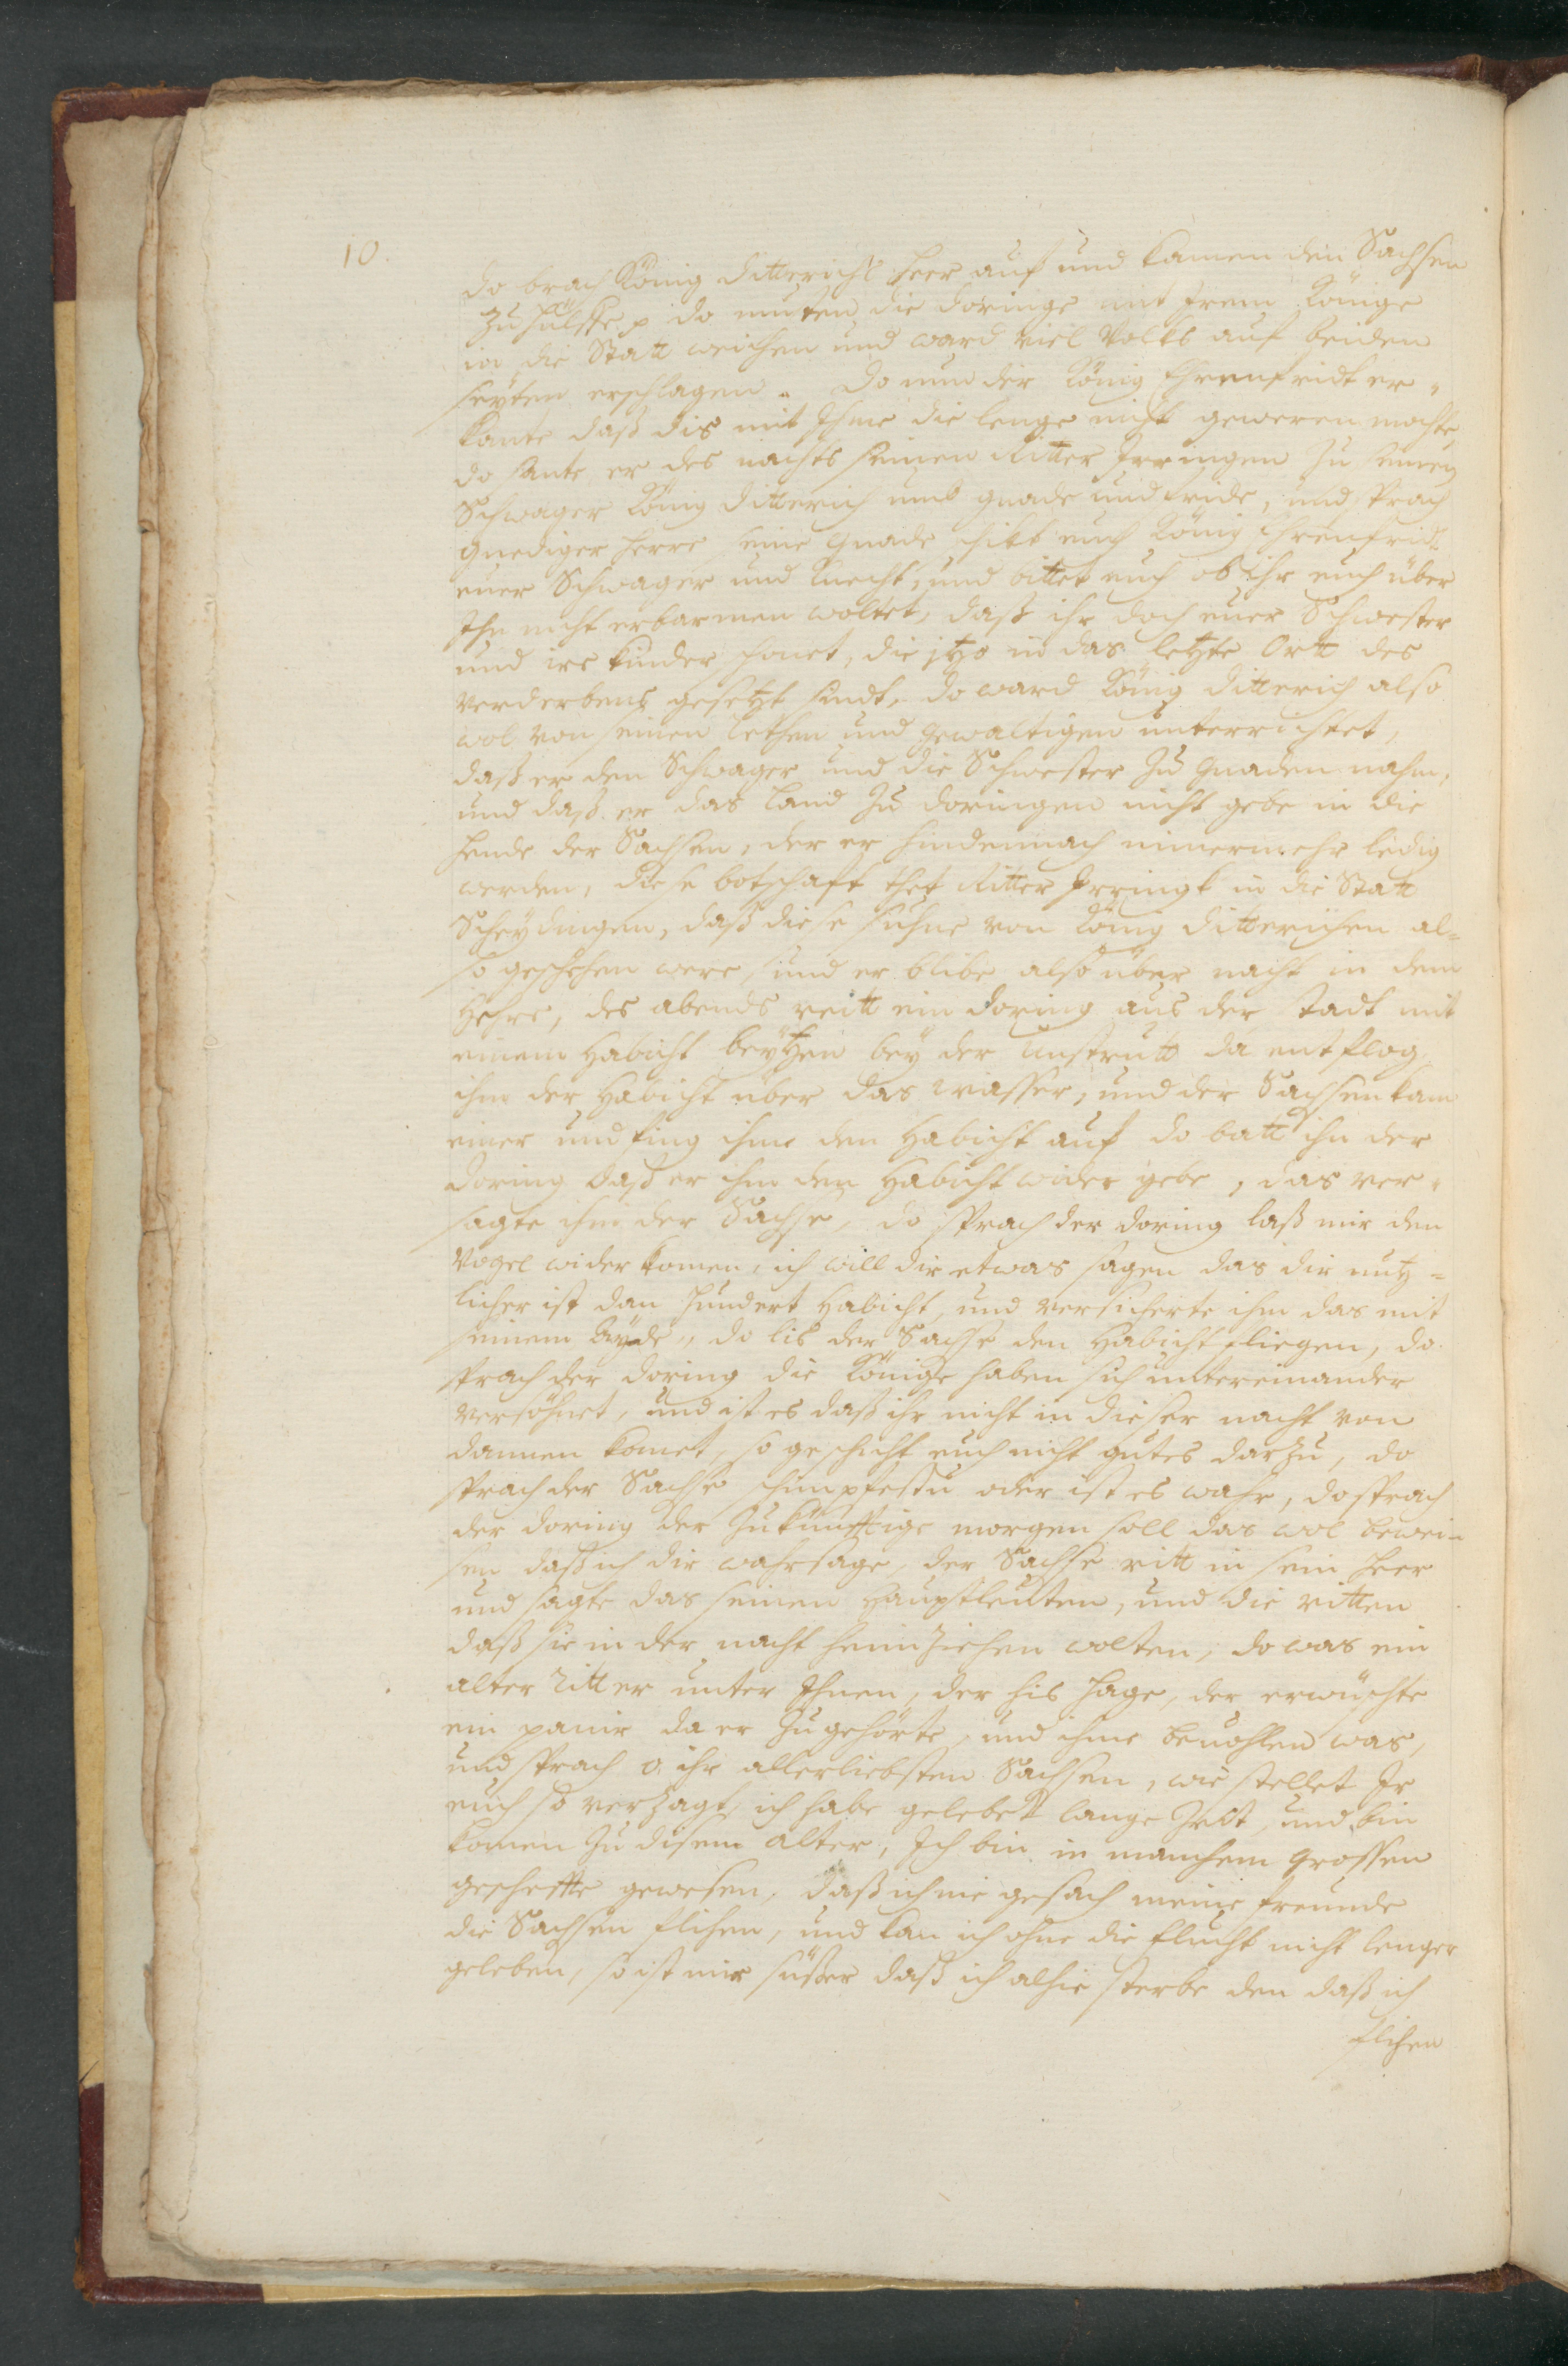 10.
do brach König ditterichs heer auf und kamen den Sachsen
zu hülffe p do musten die doringe mit Irem Könige
in die Statt weichen und ward viel Volks auf beiden
seyten erschlagen. Do nun der König Ehrenfridt er-
kante daß dis mit Ihme die lenge nicht geweren mochte,
do sante er des nachts seinen Ritter Irringen zu seinen
Schwager König ditterich umb gnade und fride, und sprach
gnediger herre seine gnade schikt euch König Ehrenfridt
euer Schwager und knecht, und bittet euch ob ihr euch über
Ihn nicht erbarmen woltet, daß ihr doch euer Schwester
und ire kinder schonet, die jtzo in das letzte Ortt des
verderbens gesetzt sindt, do ward König ditterich also
wol von seinen rethen und gewaltigen unterrichtet,
daß er den Schwager und die Schwester zu gnaden nahm,
und daß er das land zu doringen nicht gebe in die
hende der Sachsen, der er hindennach nimermehr ledig
werden, diese botschaft thet Ritter Irringk in die Statt
Scheydingen, daß diese suhne von König ditterichen al-
so geschehen were, und er blibe also über nacht in dem
Hehre, des abends reitt ein doring aus der stadt mit
einem Habicht beytzen bey der Unstrutt da entflog
ihm der Habicht über das wasser, und der Sachsen kam
einer und fing ihme den Habicht auf do batt ihn der
doring daß er ihm den Habicht wider gebe, das ver-
sagte ihm der Sachse, do sprach der doring laß mir den
Vogel wider komen, ich will dir etwas sagen das dir nutz-
licher ist dan hundert Habicht, und versicherte ihm das mit
seinem Eyde, do lis der Sachse den Habicht fliegen, do
sprach der doring die Könige haben sich untereinander
versöhnet, und ist es daß ihr nicht in dieser nacht von
dannen komet, so geschicht euch nicht gutes darzu, do
sprach der Sachse schimpfestu oder ist es wahr, do sprach
der doring der zukünfftige morgen soll das wol bewei-
sen daß ich dir wahrsage, der Sachse ritt in sein heer
und sagte das seinen Hauptleuten, und die ritten
daß sie in der nacht heimziehen wolten, do was ein
alter ritter unter Ihnen, der his Hage, der erwüschte
ein panir da er zugehörte, und ihme beuohlen was,
und sprach o ihr allerliebsten Sachsen, wie stellet Ir
euch so verzagt, ich habe gelebet lange Zeit, und bin
komen zu disem alter, Ich bin in manchem grossen
gescheffte gewesen, daß ich nie gesach meine freunde
die Sachsen flihen, und kan ich ohne die flucht nicht lenger
geleben, so ist mir süßer daß ich alhie sterbe den daß ich
flihen